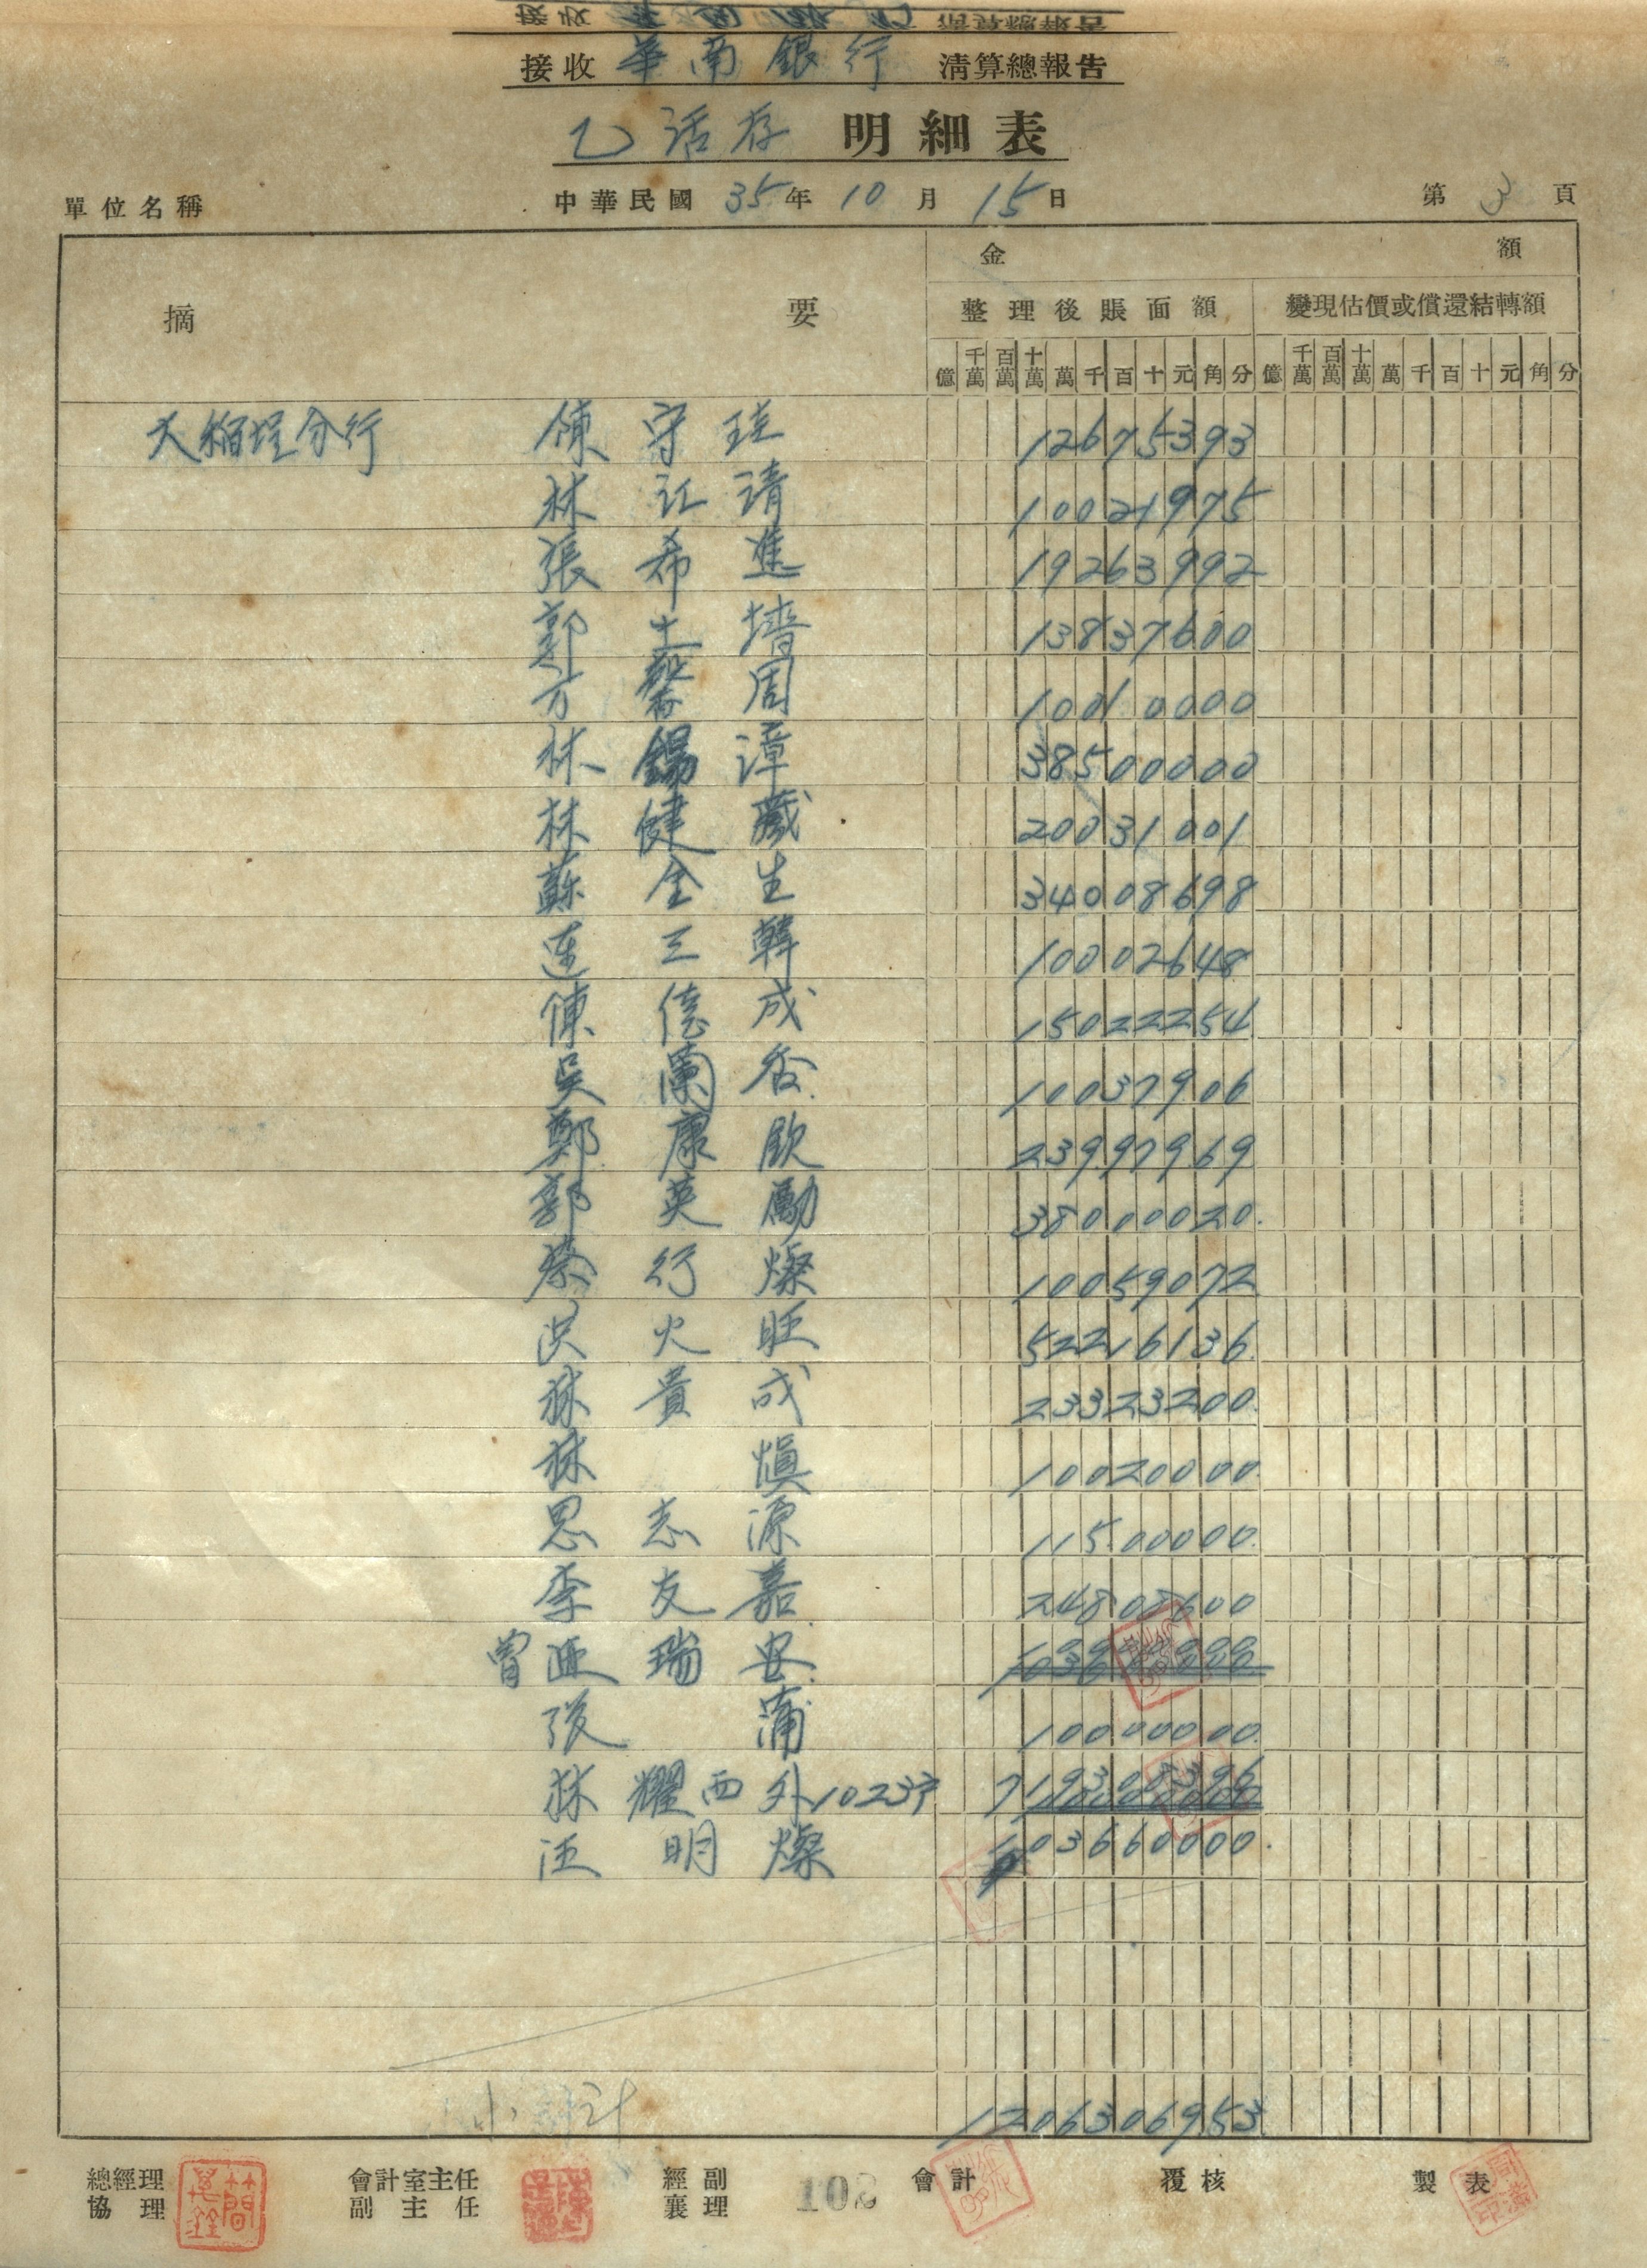 接收 華南銀行 清算總報告
乙活存 明細表
單位名稱 中華民國 35年 10月 15日 第 3 頁
摘 要 金 額
整理後賬面額 變現估價或償還結轉額
億 千萬 百萬 十萬 萬 千 百 十 元 角 分 億 千萬 百萬 十萬 萬 千 百 十 元 角 分
大稻埕分行 陳守 12675393
林江清 10021975
張希進 19263992
鄭土墻 13837600
方馨周 10010000
林錫漳 38500000
林健藏 20031001
蘇金生 34008698
連三韓 10002648
陳德成 15022254
吳蘭香 10037906
鄭康欽 23997969
郭英勵 38000020
蔡行燦 10059072
洪火旺 52216136
林貴成 23323200
林慎 10020000
恩志源 11500000
李友嘉 24808600
曾 瑞
張蒲 10000000
林耀西外1023戶
汪明燦 03660000
小計 1206306953
總經理 協理 會計室主任 副主任 經副襄理 102 會計 覆核 製表